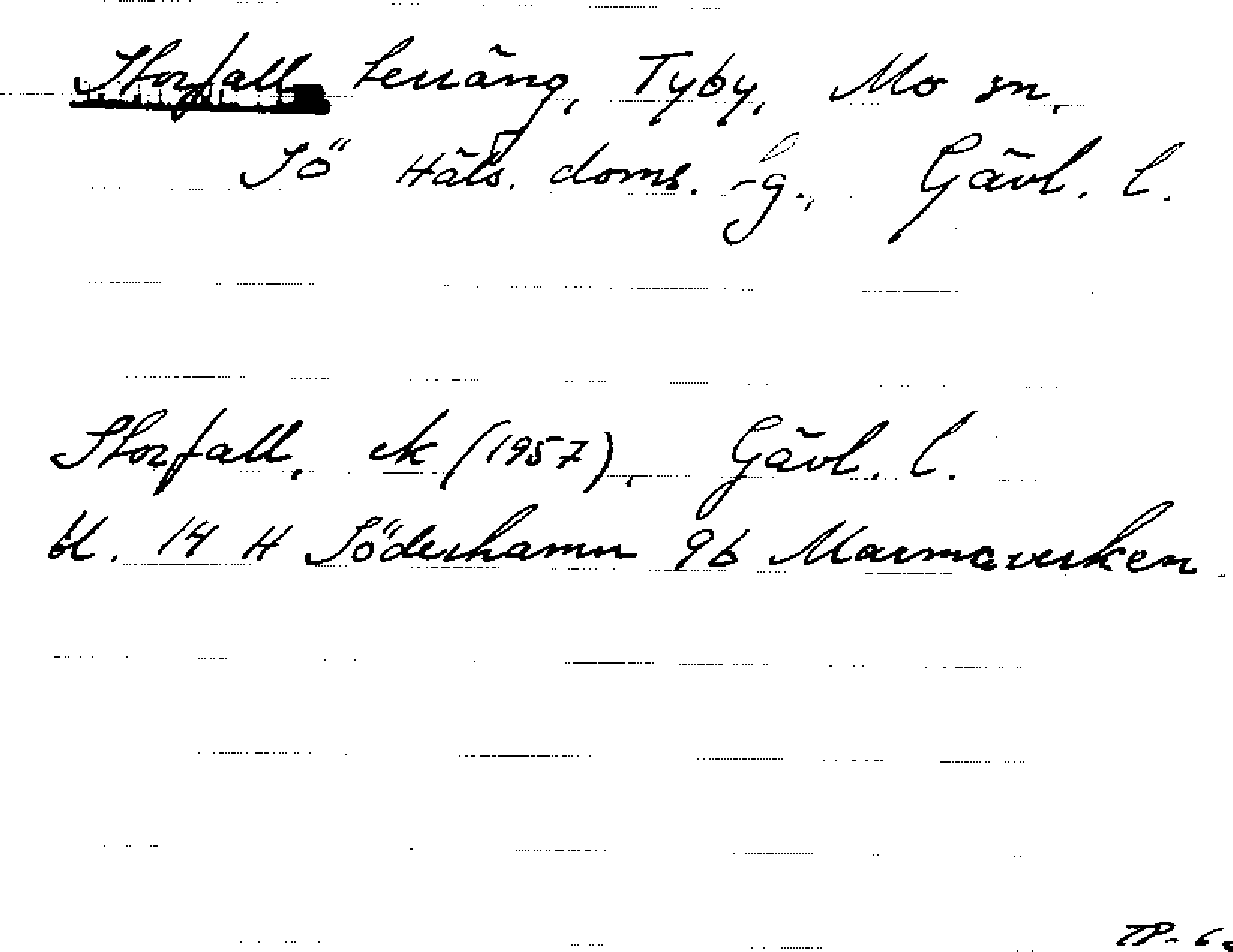 Storfall Teräng, Tyby, Mo sn,
Sö Häls. doms. sg., Gävl. l.
Storfall, ek (1957), Gävl. l.
bl. 14 H Söderhamn 9b Marmaverken